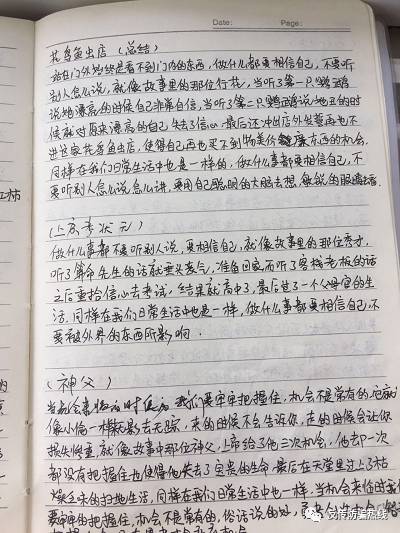 Date:    Page:
花鸟鱼虫店（总结）
站在门外始终是看不到门内的东西，做什么都要相信自己，不要听
别人怎么说，就像故事里的那位行在，当听了第一只鹦鹉
说她漂亮的时候自己非常自信，当听了第二只鹦鹉说她丑的时
候就对原来漂亮的自己失去了信心，最后还冲出店外发誓再也不
进这家花鸟鱼虫店，使得自己再也买不到物美价廉东西的机会，
同样在我们日常生活中也是一样的，做什么事都要相信自己，不
要听别人怎么说，怎么讲，要用自己聪明的大脑去想，敏锐的眼睛看。
（上京考状元）
做什么事都不要听别人说，要相信自己，就像故事里的那位秀才，
听了算命先生的话就垂头丧气，准备回家，而听了客栈老板的话
之后重拾信心去考试，结果就高中了，最后过了一个父母官的生
活，同样在我们日常生活中也是一样，做什么事都要相信自己，不
要被外界的东西所影响。
（神父）
当机会来临的时候，我们要牢牢把握住，机会不是常有的，它就
像小偷一样来去无踪，来的时候不会告诉你，走的时候会让你
损失惨重，就像故事中那位神父，上帝给了他三次机会，他去一次
都没有把握住也使得他失去了宝贵的生命，最后在天堂里过上了枯
燥乏味的扫地生活，同样在我们日常生活中也一样，当机会来临时我们
要牢牢的把握住，机会不是常有的，俗话说的好，
反传防骗热线